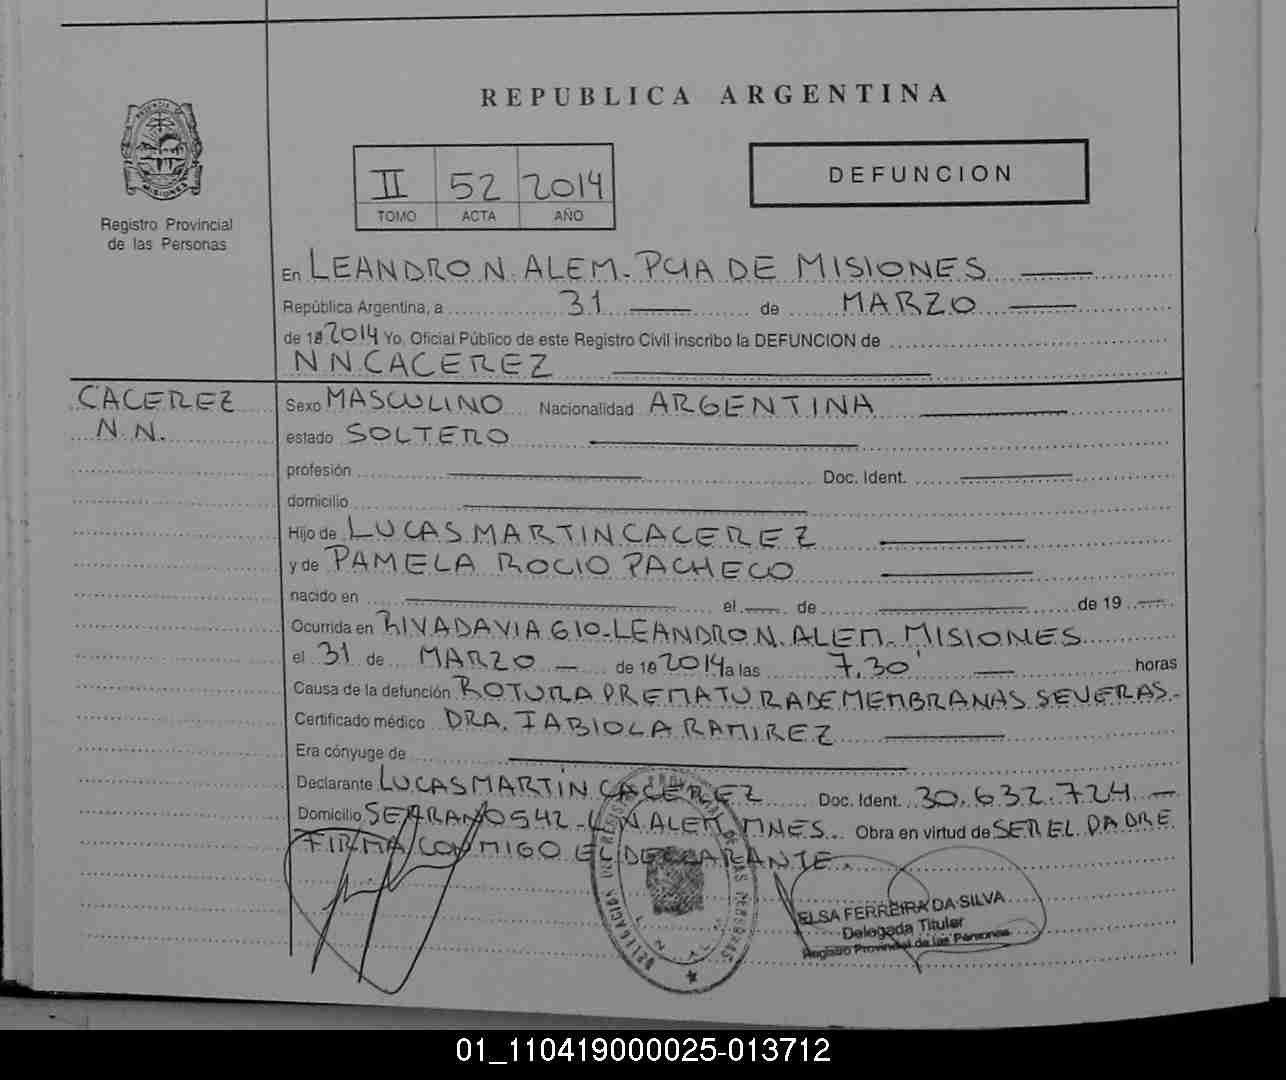 REPUBLICA ARGENTINA
II 52 2014
TOMO ACTA AÑO
DEFUNCION
Registro Provincial
de las Personas
En LEANDRO N. ALEM - PCIA DE MISIONES
República Argentina, a 31 de MARZO
de 19 2014 Yo, Oficial Público de este Registro Civil inscribo la DEFUNCION de
N N CACEREZ
CACEREZ
N. N.
Sexo MASCULINO Nacionalidad ARGENTINA
estado SOLTERO
profesión Doc. Ident.
domicilio
Hijo de LUCAS MARTIN CACEREZ
y de PAMELA ROCIO PACHECO
nacido en el de de 19
Ocurrida en RIVADAVIA 610 - LEANDRO N. ALEM - MISIONES
el 31 de MARZO - de 19 2014 a las 7,30' horas
Causa de la defunción ROTURA PREMATURA DE MEMBRANAS SEVERAS.-
Certificado médico DRA. FABIOLA RAMIREZ
Era cónyuge de
Declarante LUCAS MARTÍN CACEREZ Doc. Ident. 30.632.724 -
Domicilio SERRANO 542 - L.N. ALEM MNES. Obra en virtud de SER EL PADRE
FIRMA CONMIGO EL DECLARANTE.
ELSA FERREIRA DA SILVA
Delegada Titular
Registro Provincial de las Personas
01_110419000025-013712